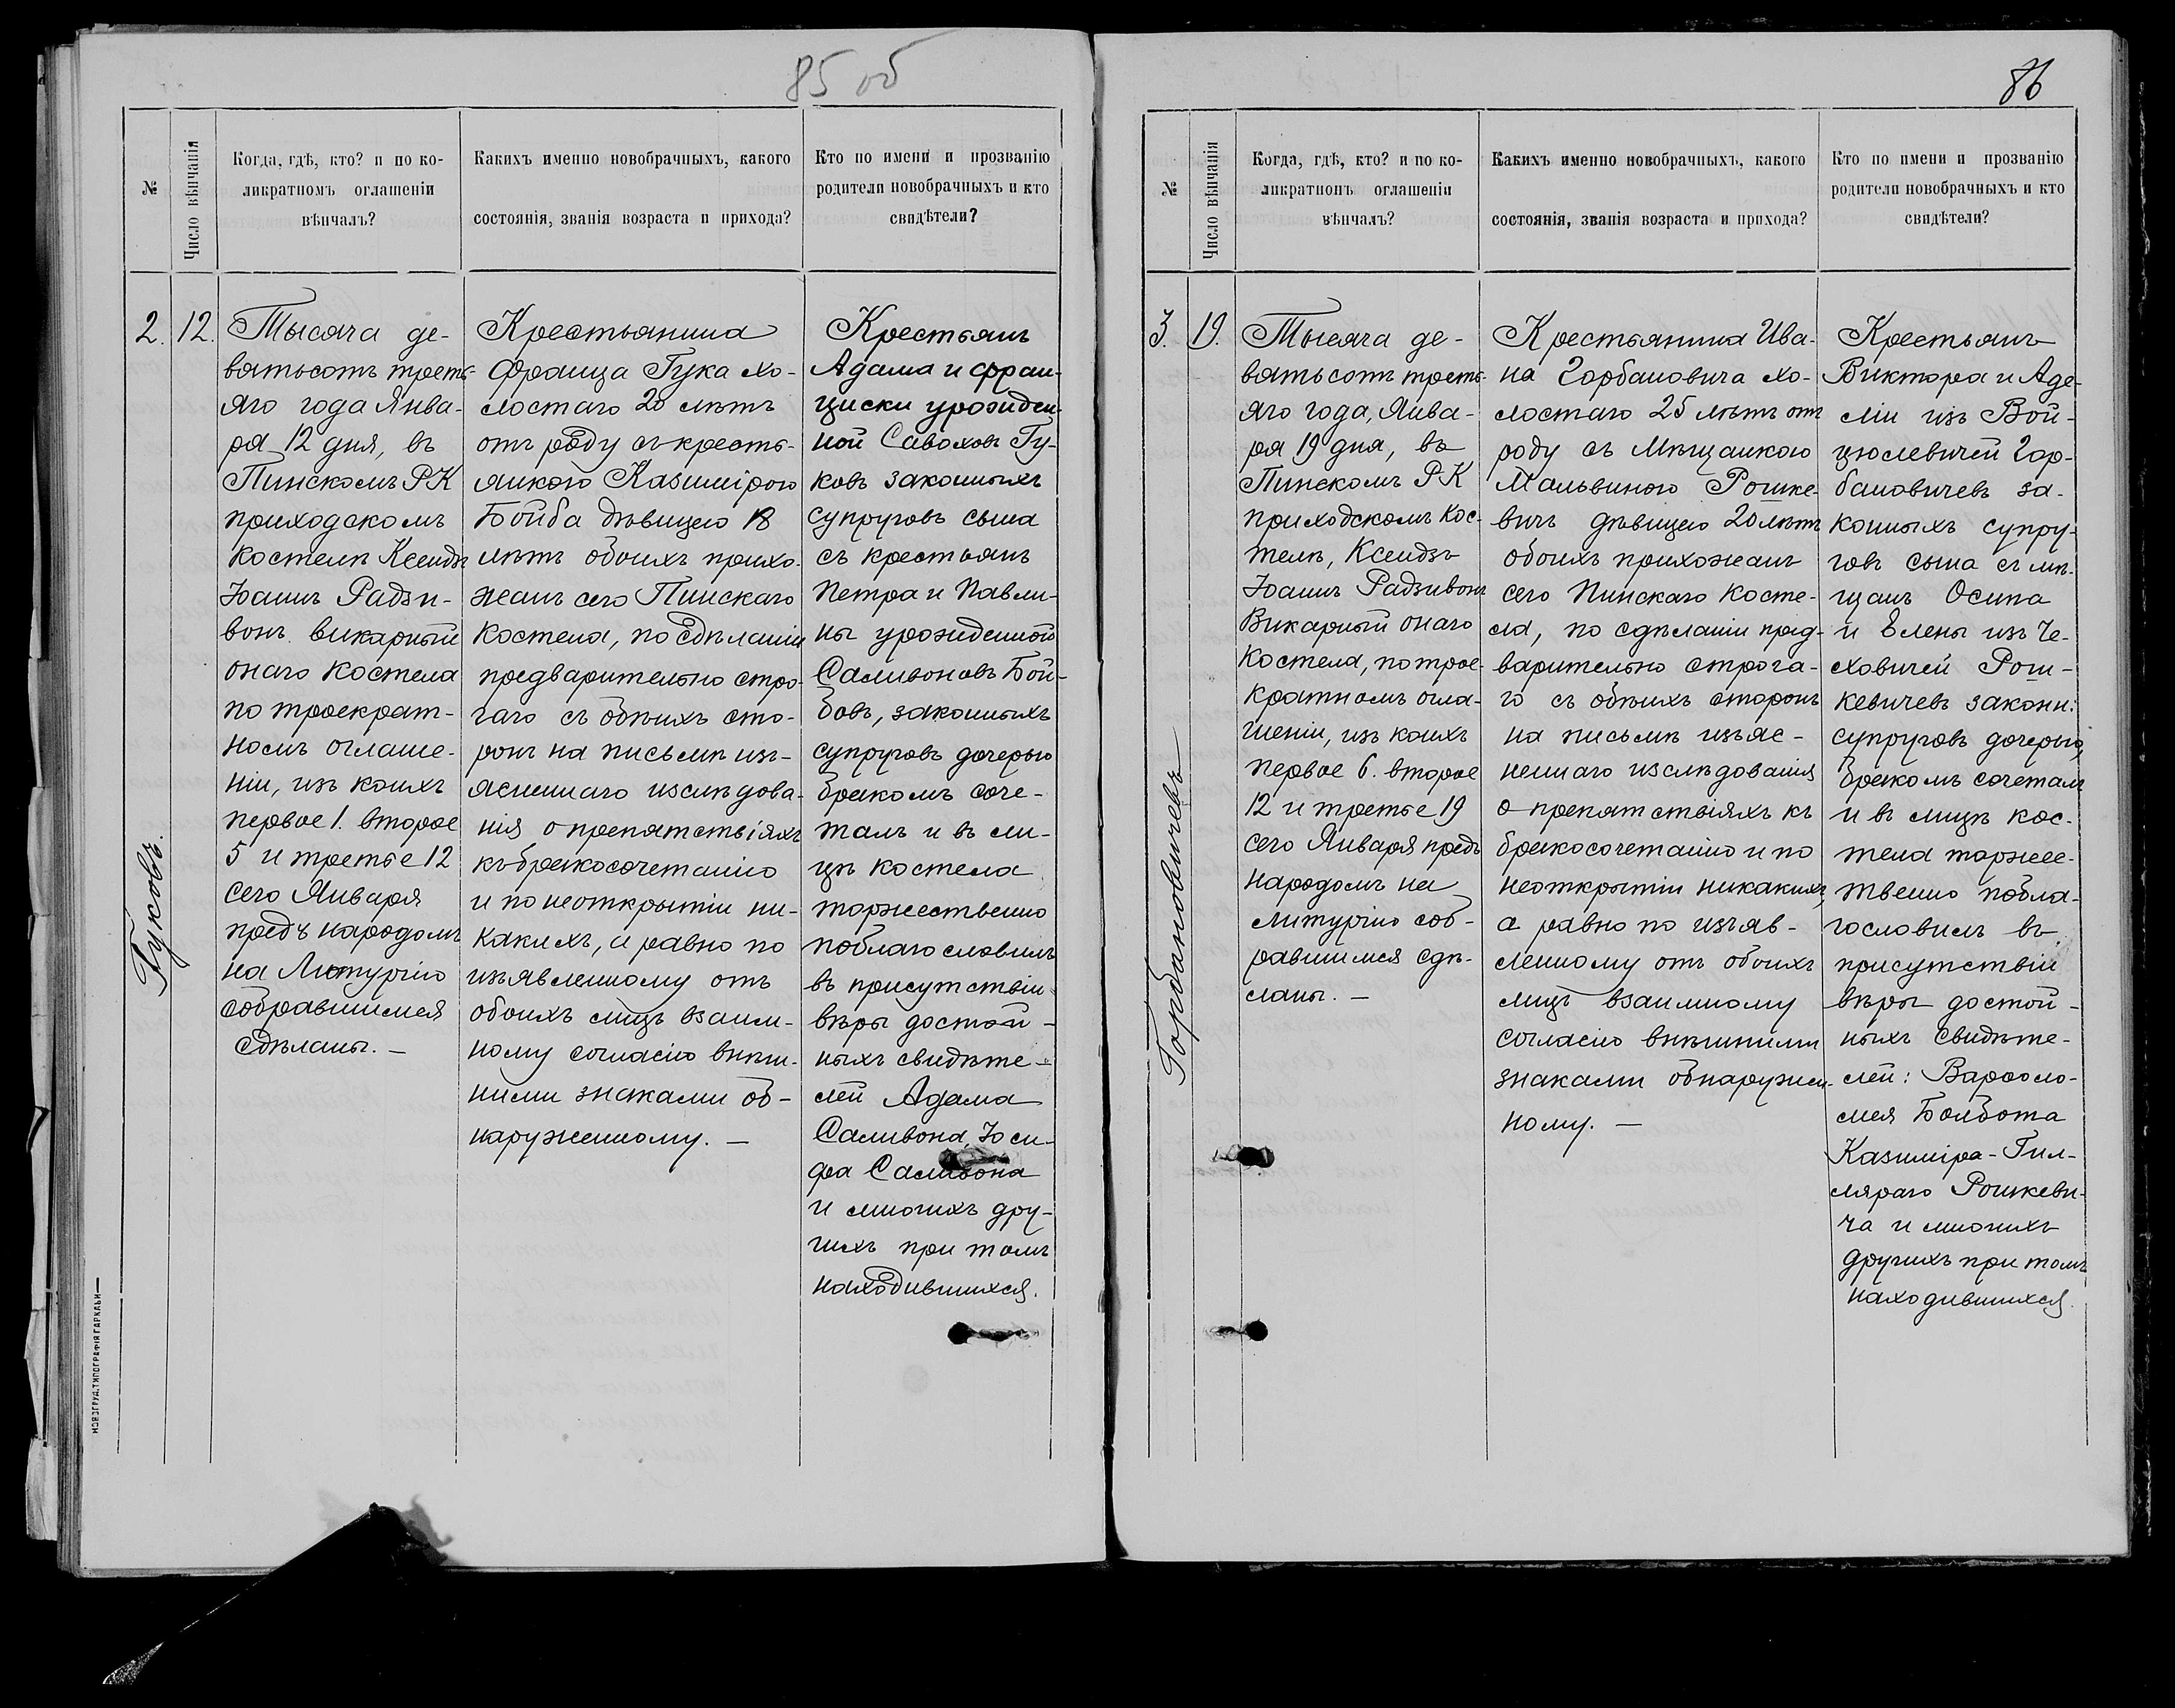 85 об
№
Число вѣнчанія
Когда, гдѣ, кто? и по ко-
ликратномъ оглашеніи
вѣнчалъ?
Какихъ именно новобрачныхъ, какого
состоянія, званія возраста и прихода?
Кто по имени и прозванію
родители новобрачныхъ и кто
свидѣтели?
Гуковъ.
2.
12.
Тысяча де-
вятьсотъ треть-
яго года Янва-
ря 12 дня, въ
Пинскомъ РК
приходскомъ
костелѣ Ксендзъ
Іоаннъ Радзи-
вонъ викарный
онаго костела
по троекрат-
номъ оглаше-
ніи, изъ коихъ
первое 1. второе
5 и третье 12
сего Января
предъ народомъ
на Литургію
собравшимся
сдѣланы. —
Крестьянина
Франца Гука хо-
лостаго 20 лѣтъ
отъ роду съ кресть-
янкою Казимірою
Бойба дѣвицею 18
лѣтъ обоихъ прихо-
жанъ сего Пинскаго
костела, по сдѣланіи
предварительно стро-
гаго съ обѣихъ сто-
ронъ на письмѣ изъ-
ясненнаго изслѣдова-
нія о препятствіяхъ
къ бракосочетанію
и по неоткрытіи ни-
какихъ, а равно по
изъявленному отъ
обоихъ лицъ взаим-
ному согласію внѣш-
ними знаками об-
наруженному. —
Крестьянъ
Адама и Фран-
циски урожден-
ной Савоховъ Гу-
ковъ законныхъ
супруговъ сына
съ крестьянъ
Петра и Павли-
ны урожденной
Саливоновъ Бой-
бовъ, законныхъ
супруговъ дочерью
бракомъ соче-
талъ и въ ли-
цѣ костела
торжественно
поблагословилъ
въ присутствіи
вѣры достой-
ныхъ свидѣте-
лей Адама
Саливона, Іоси-
фа Саливона
и многихъ дру-
гихъ при томъ
находившихся.
НОВОГРУД. ТИПОГРАФІЯ ГАРКАВИ—
86
№
Число вѣнчанія
Когда, гдѣ, кто? и по ко-
ликратномъ оглашеніи
вѣнчалъ?
Какихъ именно новобрачныхъ, какого
состоянія, званія возраста и прихода?
Кто по имени и прозванію
родители новобрачныхъ и кто
свидѣтели?
Горбановичевъ
3.
19.
Тысяча де-
вятьсотъ треть-
яго года, Янва-
ря 19 дня, въ
Пинскомъ РК
приходскомъ кос-
телѣ, Ксендзъ
Іоаннъ Радзивонъ
Викарный онаго
костела, по трое-
кратномъ огла-
шеніи, изъ коихъ
первое 6. второе
12 и третье 19
сего Января предъ
народомъ на
литургію соб-
равшимся сдѣ-
ланы. —
Крестьянина Ива-
на Горбановича хо-
лостаго 25 лѣтъ отъ
роду съ Мѣщанкою
Мальвиною Рошке-
вичъ дѣвицею 20 лѣтъ
обоихъ прихожанъ
сего Пинскаго косте-
ла, по сдѣланіи пред-
варительно строга-
го съ обѣихъ сторонъ
на письмѣ изъяс-
неннаго изслѣдованія
о препятствіяхъ къ
бракосочетанію и по
неоткрытіи никакихъ,
а равно по изъяв-
ленному отъ обоихъ
лицъ взаимному
согласію внѣшними
знаками обнаружен-
ному. —
Крестьянъ
Виктора и Аде-
ліи изъ Вой-
цюлевичей Гор-
бановичевъ за-
конныхъ супру-
говъ сына съ мѣ-
щанъ Осипа
и Елены изъ Че-
ховичей Рош-
кевичевъ законн:
супруговъ дочерью,
бракомъ сочеталъ
и въ лицѣ кос-
тела торжес-
твенно побла-
гословилъ въ
присутствіи
вѣры достой-
ныхъ свидѣте-
лей: Варфоло-
мея Болбота
Казиміра-Гил-
ляраго Рошкеви-
ча и многихъ
другихъ при томъ
находившихся.